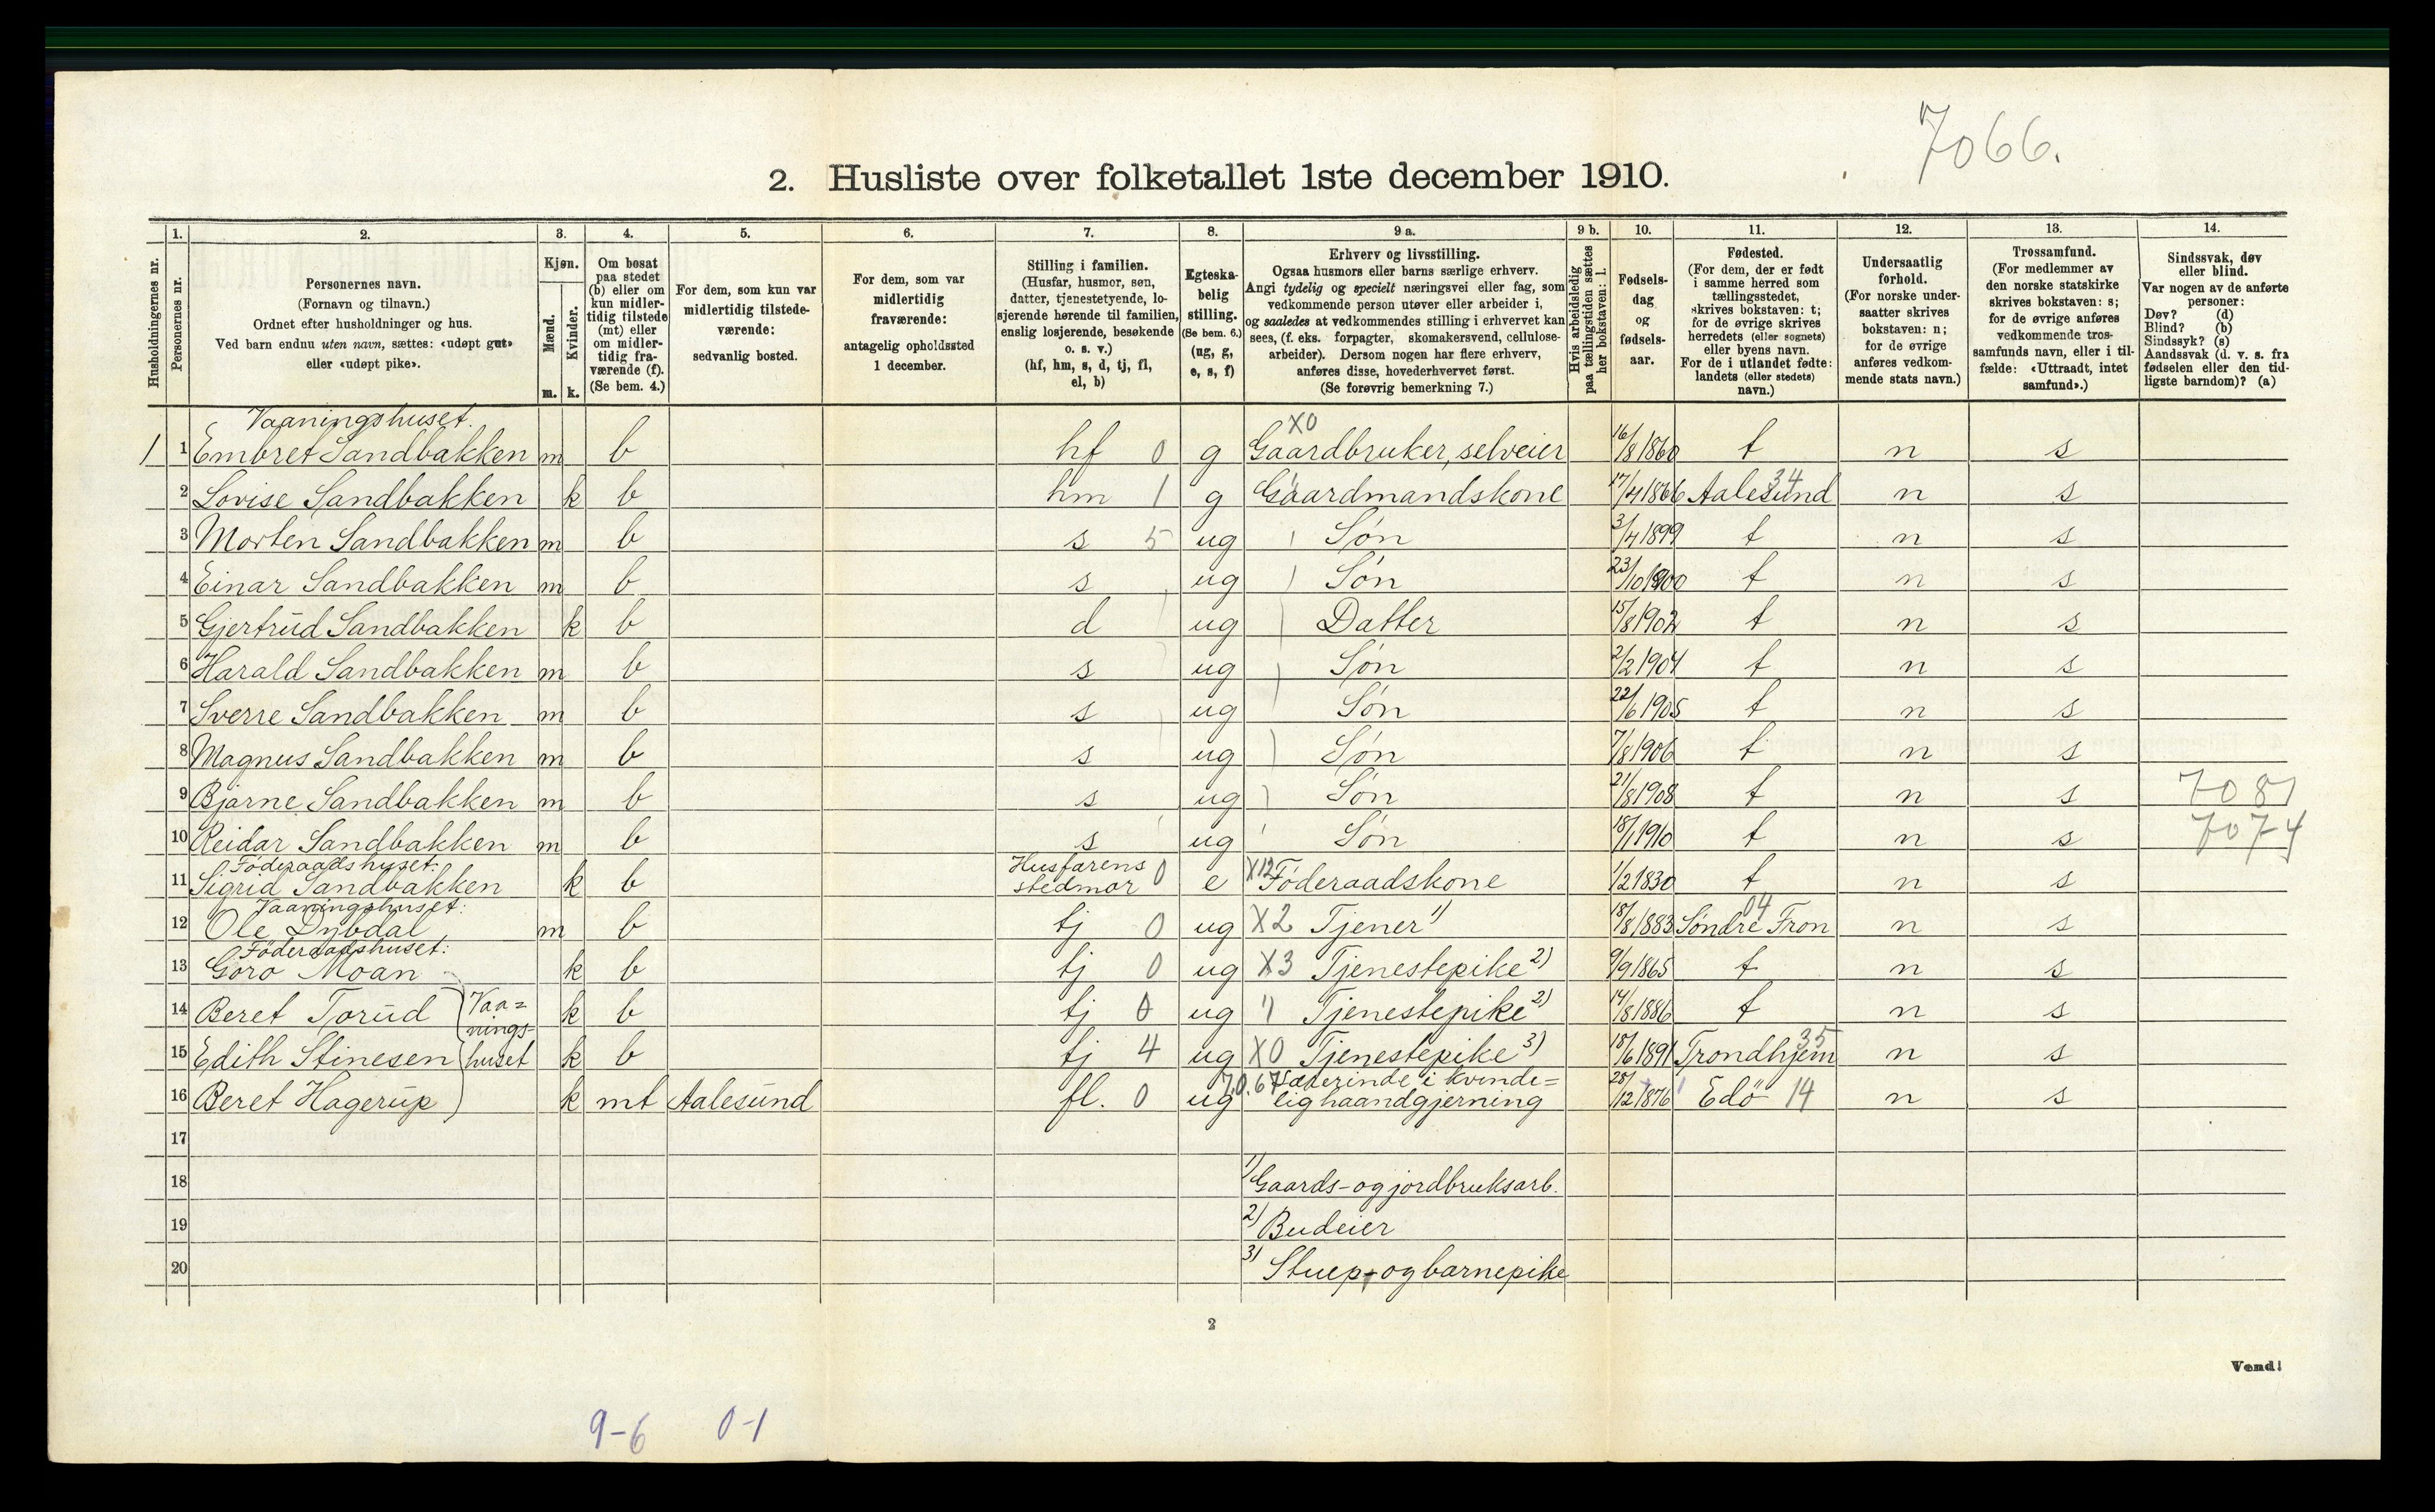 7066.
2. Husliste over folketallet 1ste december 1910.
Husholdningernes nr.
1.
Personernes nr.
2.
Personernes navn.
(Fornavn og tilnavn.)
Ordnet efter husholdninger og hus.
Ved barn endnu uten navn, sættes: «udøpt gut»
eller «udøpt pike».
3.
Kjøn.
Mænd.
Kvinder.
m. k.
4.
Om bosat
paa stedet
(b) eller om
kun midler-
tidig tilstede
(mt) eller
om midler-
tidig fra-
værende (f).
(Se bem. 4.)
5.
For dem, som kun var
midlertidig tilstede-
værende:
sedvanlig bosted.
6.
For dem, som var
midlertidig
fraværende:
antagelig opholdssted
1 december.
7.
Stilling i familien.
(Husfar, husmor, søn,
datter, tjenestetyende, lo-
sjerende hørende til familien,
enslig losjerende, besøkende
o. s. v.)
(hf, hm, s, d, tj, fl,
el, b)
8.
Egteska-
belig
stilling.
(Se bem. 6.)
(ug, g,
e, s, f)
9 a.
Erhverv og livsstilling.
Ogsaa husmors eller barns særlige erhverv.
Angi tydelig og specielt næringsvei eller fag, som
vedkommende person utøver eller arbeider i,
og saaledes at vedkommendes stilling i erhvervet kan
sees, (f. eks. forpagter, skomakersvend, cellulose-
arbeider). Dersom nogen har flere erhverv,
anføres disse, hovederhvervet først.
(Se forøvrig bemerkning 7.)
9 b.
Hvis arbeidsledig
paa tællingstiden sættes
her bokstaven: l.
10.
Fødsels-
dag
og
fødsels-
aar.
11.
Fødested.
(For dem, der er født
i samme herred som
tællingsstedet,
skrives bokstaven: t;
for de øvrige skrives
herredets (eller sognets)
eller byens navn.
For de i utlandet fødte:
landets (eller stedets)
navn.)
12.
Undersaatlig
forhold.
(For norske under-
saatter skrives
bokstaven: n;
for de øvrige
anføres vedkom-
mende stats navn.)
13.
Trossamfund.
(For medlemmer av
den norske statskirke
skrives bokstaven: s;
for de øvrige anføres
vedkommende tros-
samfunds navn, eller i til-
fælde: «Uttraadt, intet
samfund».)
14.
Sindssvak, døv
eller blind.
Var nogen av de anførte
personer:
Døv? (d)
Blind? (b)
Sindssyk? (s)
Aandssvak (d. v. s. fra
fødselen eller den tid-
ligste barndom)? (a)
Vaaningshuset. X0
1 1 Embret Sandbakken m b hf 0 g Gaardbruker, selveier 16/8 1860 t n s
2 Lovise Sandbakken k b hm 1 g Gaardmandskone 17/4 1866 Aalesund 34 n s
3 Morten Sandbakken m b s 5 ug Søn 3/4 1899 t n s
4 Einar Sandbakken m b s ug Søn 23/10 1900 t n s
5 Gjertrud Sandbakken k b d ug Datter 15/8 1902 t n s
6 Harald Sandbakken m b s ug Søn 2/2 1904 t n s
7 Sverre Sandbakken m b s ug Søn 22/6 1905 t n s
8 Magnus Sandbakken m b s ug Søn 7/8 1906 t n s
9 Bjarne Sandbakken m b s ug Søn 21/8 1908 t n s 7081
10 Reidar Sandbakken m b s ug Søn 18/1 1910 t n s 7074
Föderaadshuset. Husfarens
11 Sigrid Sandbakken k b stedmor 0 e X12 Föderaadskone 1/2 1830 t n s
Vaaningshuset:
12 Ole Dybdal m b tj 0 ug X2 Tjener 1) 18/8 1883 Søndre Fron 04 n s
Föderaadshuset:
13 Goro Moan k b tj 0 ug X3 Tjenestepike 2) 9/9 1865 t n s
14 Beret Torud (Vaa= k b tj 0 ug " Tjenestepike 2) 14/8 1886 t n s
nings-
15 Edith Stinesen huset k b tj 4 ug X0 Tjenestepike 3) 18/6 1891 Trondhjem 35 n s
70.67 Lærerinde i kvinde=
16 Beret Hagerup k mt Aalesund fl. 0 ug lig haandgjerning 28/12 1876 Edö 14 n s
17
18 1) Gaards- og jordbruksarb.
19 2) Budeier
20 3) Stuep- og barnepike
2
Vend!
9-6 0-1